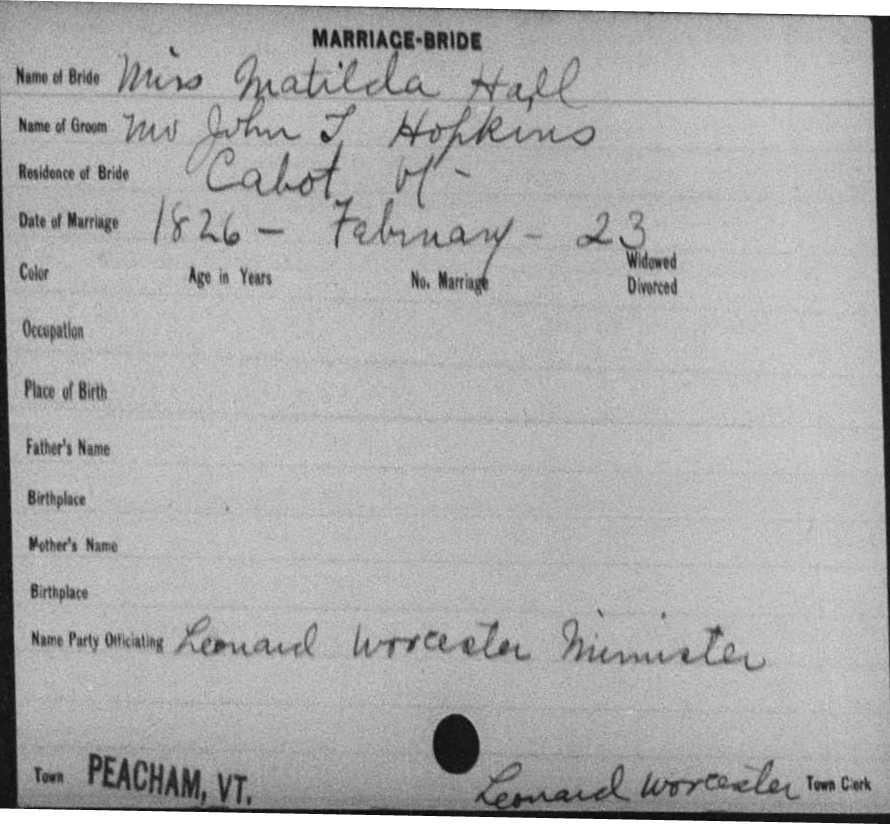 MARRIAGE-BRIDE
Name of Bride Miss Matilda Hall
Name of Groom Mr John T Hopkins
Residence of Bride Cabot Vt -
Date of Marriage 1826 - February - 23
Color Age in Years No. Marriage Widowed
Divorced
Occupation
Place of Birth
Father's Name
Birthplace
Mother's Name
Birthplace
Name Party Officiating Leonard Worcester Minister
Town PEACHAM, VT. Leonard Worcester Town Clerk